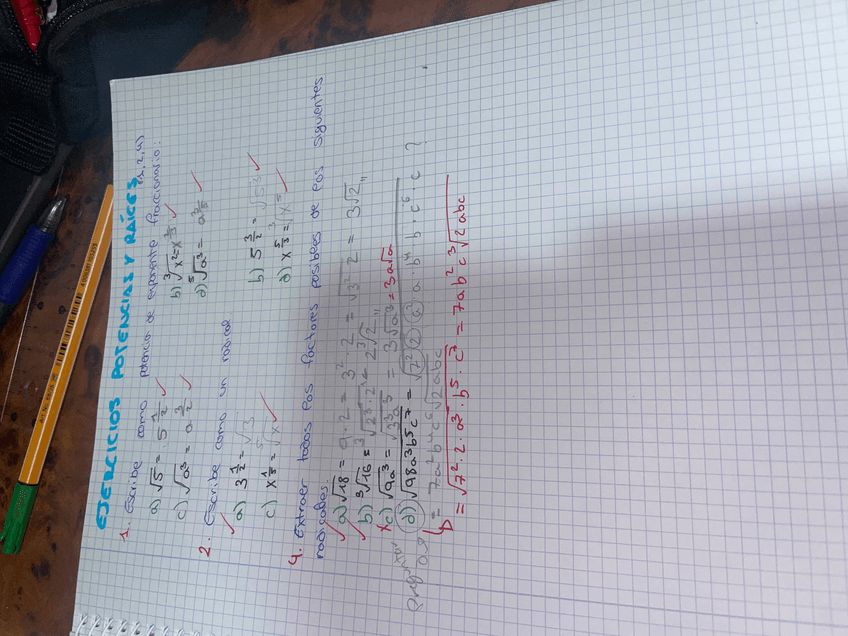 EJERCICIOS POTENCIAS Y RAÍCES
1. Escribe como potencia de exponente fraccionario:
a) √5 = 5^1/2 ✓ b) ∛x² = x^2/3 ✓
c) √a³ = a^3/2 ✓ d) ⁵√a³ = a^3/5 ✓
2. Escribe como un radical
✓ a) 3^1/2 = √3 b) 5^3/2 = √5³ ✓
c) x^1/5 = ⁵√x ✓ d) x^5/3 = ∛x⁵ ✓
4. Extraer todos los factores posibles de los siguientes
radicales.
✓ a) √18 = 9·2 = 3²·2 = √3²·2 = 3√2 ,,
✓ b) ∛16 = ∛2³·2 = 2∛2 ,,
x c) √9a³ = √3²a³ = 3√a³ = 3a√a
d) √98a³b⁵c⁷ = √7² 2 a² a b⁴ b c⁶ · c ?
= 7a²b⁴c⁶√2abc
= √7²·2·a³·b⁵·c⁷ = 7ab²c³√2abc